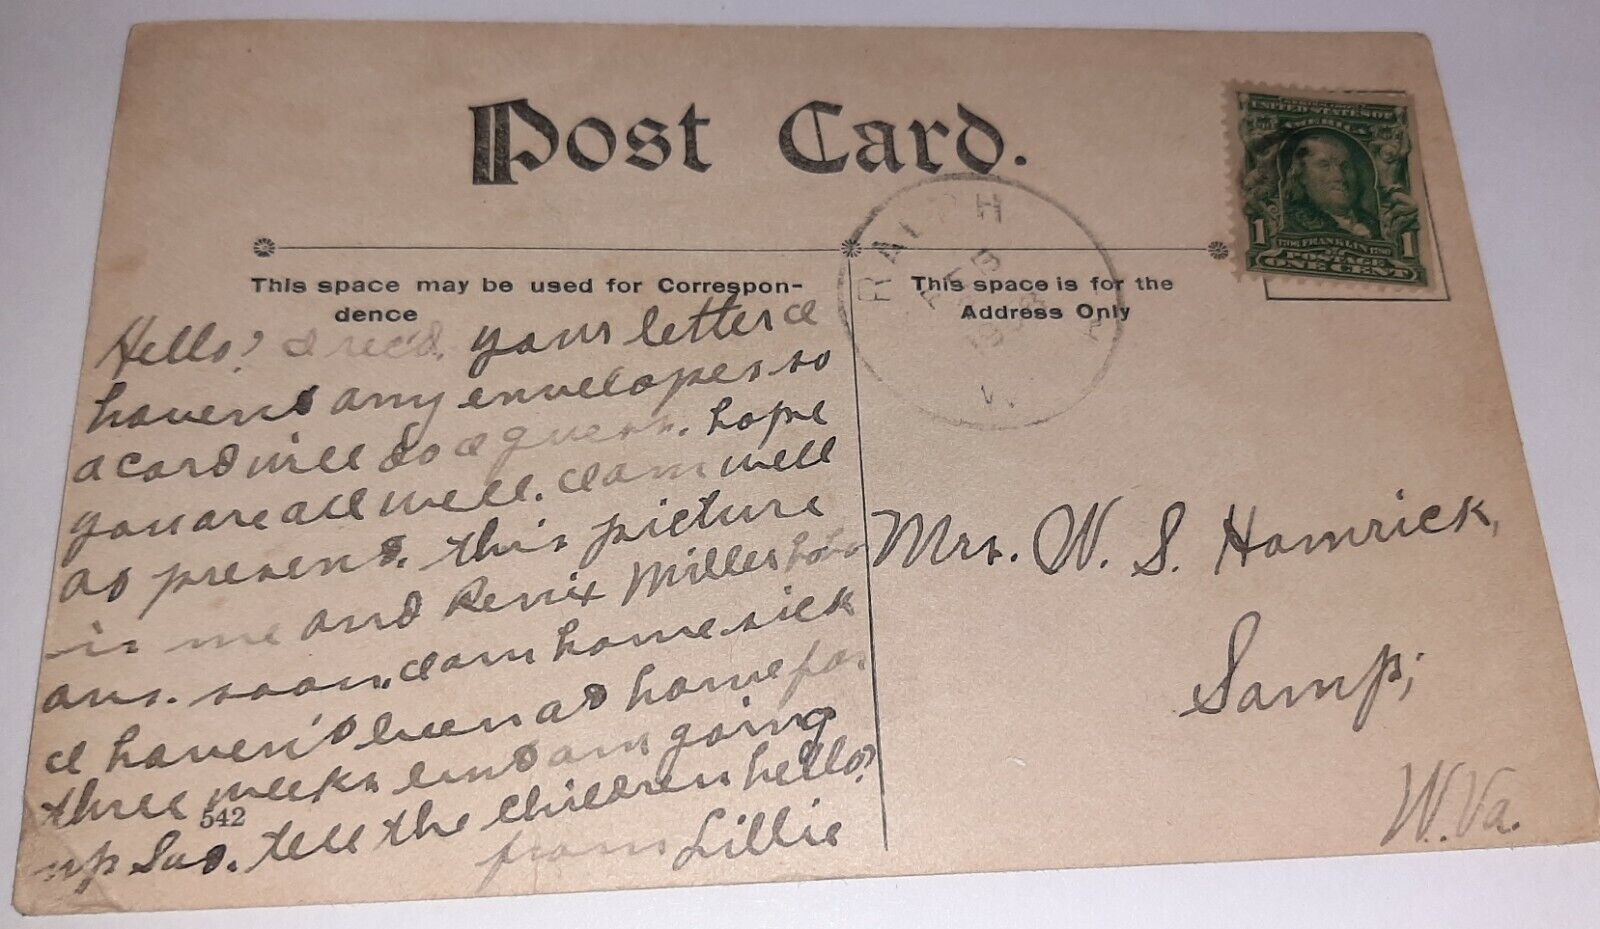 Post Card.
This space may be used for Correspon-
dence
This space is for the
Address Only
RALPH
W
UNITED STATES OF
AMERICA
1 1706 FRANKLIN 1790 1
POSTAGE
ONE CENT
Hello? I rec'd. your letter I
havent any envelopes so
a card will do I guess. hope
you are all well. I am well
as present. this picture
is me and Renix Miller
ans. soon. I am home sick
I haven't been at home for
three weeks but am going
up Sat. tell the children hello?
from Lillie
542
Mrs. W. S. Hamrick,
Samp;
W. Va.